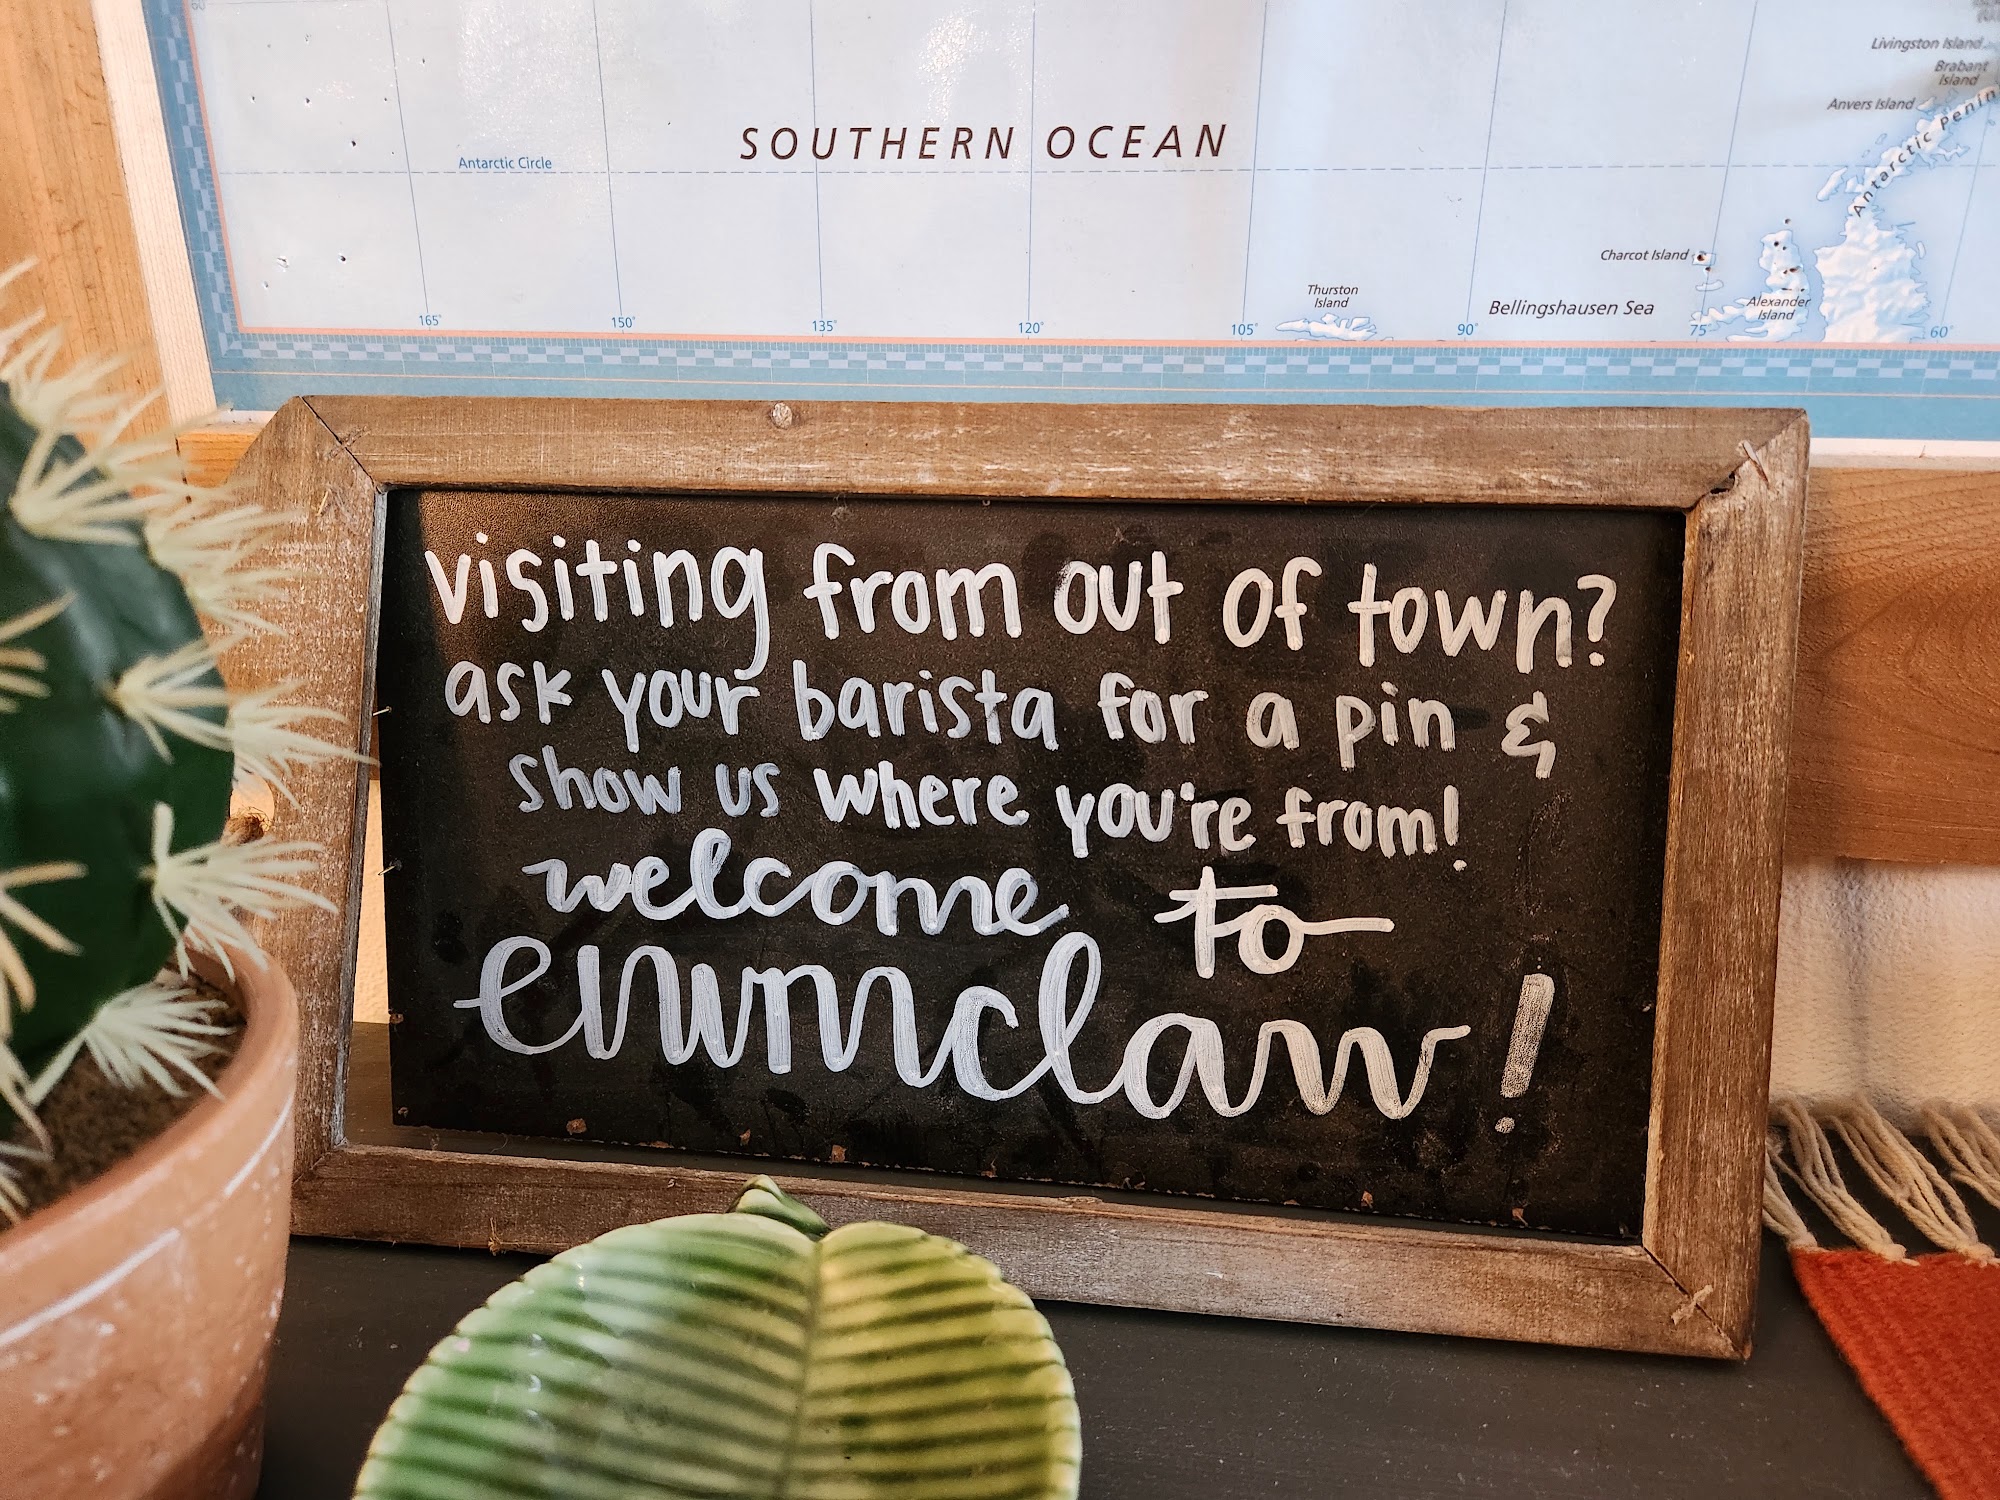 Livingston Island
Brabant
Island
Anvers Island
Antarctic Penin
SOUTHERN OCEAN
Antarctic Circle
Charcot Island
Thurston
Island
Bellingshausen Sea
Alexander
Island
165° 150° 135° 120° 105° 90° 75° 60°
visiting from out of town?
ask your barista for a pin &
show us where you're from!
welcome to
enumclaw!